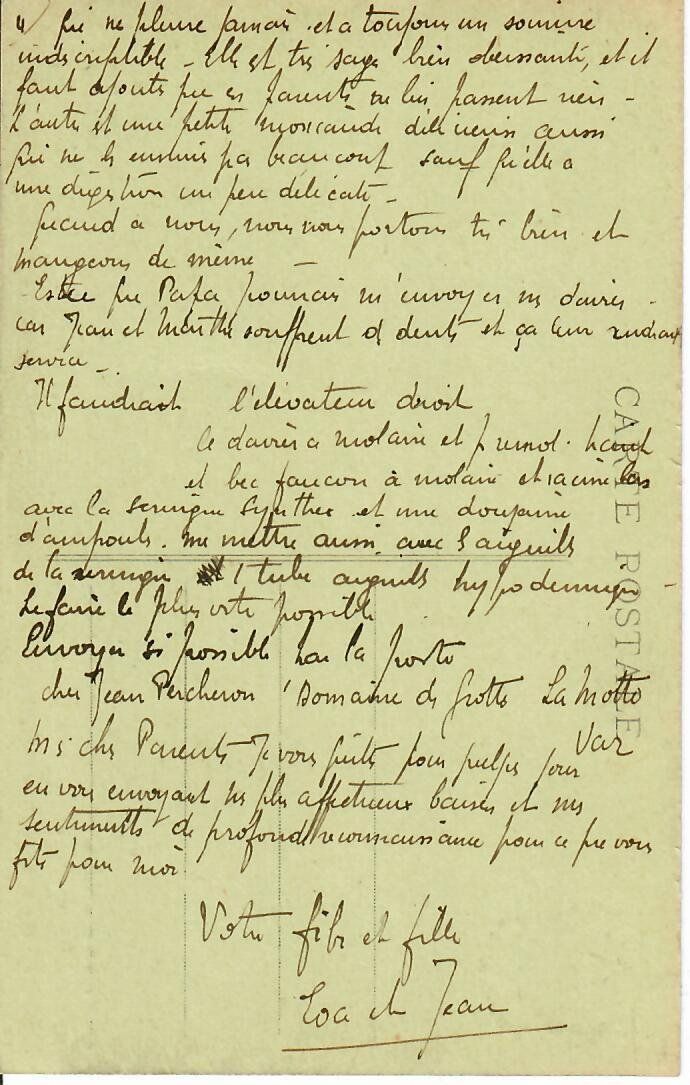 4) qui ne pleure jamais et a toujours un sourire
indescriptible – Elle est très sage bien obeissante, et il
faut ajouter que ses parents ne lui passent rien –
L'autre est une petite délicieuse aussi
qui ne les ennuie pas beaucoup sauf qu'elle a
une digestion un peu délicate –
Quand a nous, nous nous portons très bien et
mangeons de même –
Est ce que Papa pourrait m'envoyer mes daviers –
car Jean et Marthe souffrent des dents et ça leur rendrait
service –
Il faudrait l'élévateur droit
le davier a molaire et premol. haut
et bec faucon à molaire et racine bas
avec la seringue Synthex et une douzaine
d'ampoules. me mettre aussi avec 3 aiguilles
de la seringue 1 tube aiguilles hypodermiques
Le faire le plus vite possible
Envoyer si possible par la poste
chez Jean Percheron Domaine des Grottes La Motte
Var
Mes chers Parents je vous quitte pour quelques jours
en vous envoyant nos plus affectueux baisers et nos
sentiments de profonde reconnaissance pour ce que vous
faites pour moi
Votre fils et fille
Eva et Jean
CARTE POSTALE